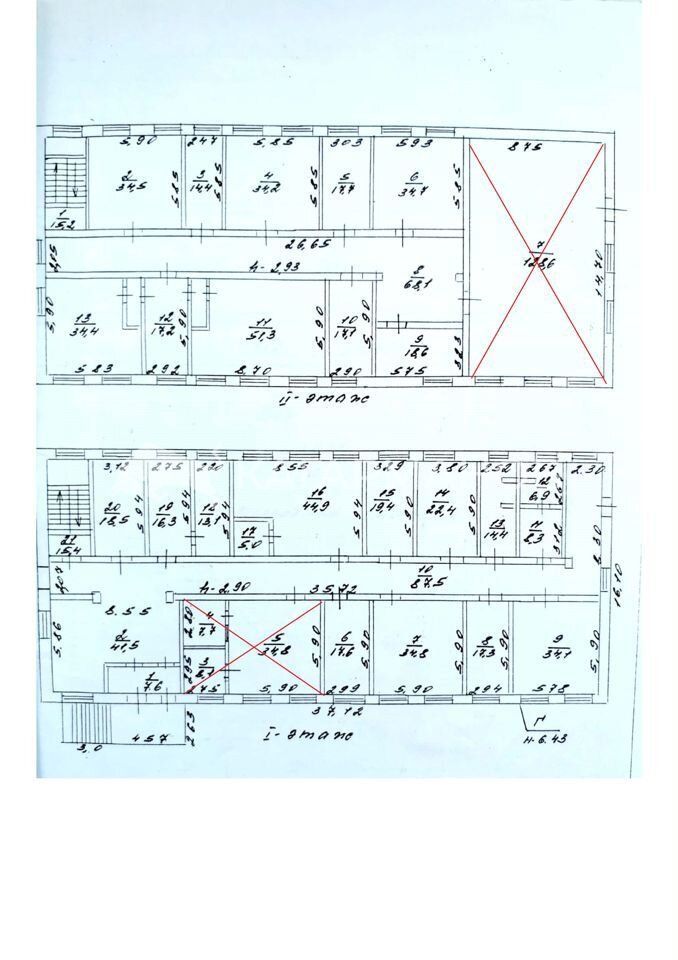 5,90 247 5,85 303 593 875
2
34,5
585
3
14,4
585
4
34,2
585
5
17,7
585
6
34,7
585
1
15,2
7
128,6
14,70
2,05
26,65
h-2,93
8
68,1
5,90
13
34,4
12
17,2
5,90
11
51,3
5,90
10
17,1
5,90
9
18,6
323
583 292 8,70 290 575
II-этаж
3,12 275 220 855 329 3,80 252 267 2.30
20
18,5
594
19
16,3
594
18
13,1
594
16
44,9
594
15
19,4
590
14
22,4
590
12
6,9
261
17
5,0
13
14,4
11
8,3
312
8.30
21
15,4
207
10
87,5
h-2,90 35,72
16,10
8.55
2
41,5
5,86
2,80
4
7,7
5
34,8
5,90
6
17,6
5,90
7
34,8
5,90
8
17,3
5,90
9
34,1
5,90
3
8,1
295
1
7,6
275 5,90 299 5,90 294 578
37,12
263
3,0 457
I-этаж
Г
н-6.43